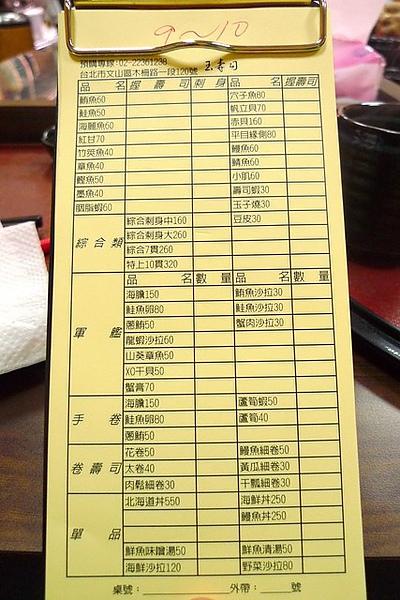 9～10
預購專線:02-22361238
台北市文山區木柵路一段120號 玉壽司
品 名 握 壽 司 刺 身 品 名 握壽司
鮪魚60 穴子魚80
鮭魚50 帆立貝70
海鱺魚60 赤貝160
紅甘70 平目緣側80
竹筴魚40 鰻魚60
章魚40 鯖魚60
鰹魚50 小肌60
墨魚40 壽司蝦30
胭脂蝦60 玉子燒30
綜 合 類 綜合刺身中160 豆皮30
綜合刺身大260
綜合7貫260
特上10貫320
品 名 數 量 品 名 數 量
軍 鑑 海膽150 鮪魚沙拉30
鮭魚卵80 鮭魚沙拉30
蔥鮪50 蟹肉沙拉30
龍蝦沙拉60
山葵章魚50
XO干貝50
蟹膏70
手 卷 海膽150 蘆筍蝦50
鮭魚卵80 蘆筍40
蔥鮪50
卷 壽 司 花卷50 鰻魚細卷50
太卷40 黃瓜細卷30
肉鬆細卷30 干瓢細卷30
單 品 北海道丼550 海鮮丼250
鰻魚丼250
鮮魚味噌湯50 鮮魚清湯50
海鮮沙拉120 野菜沙拉80
桌號： 外帶： 號